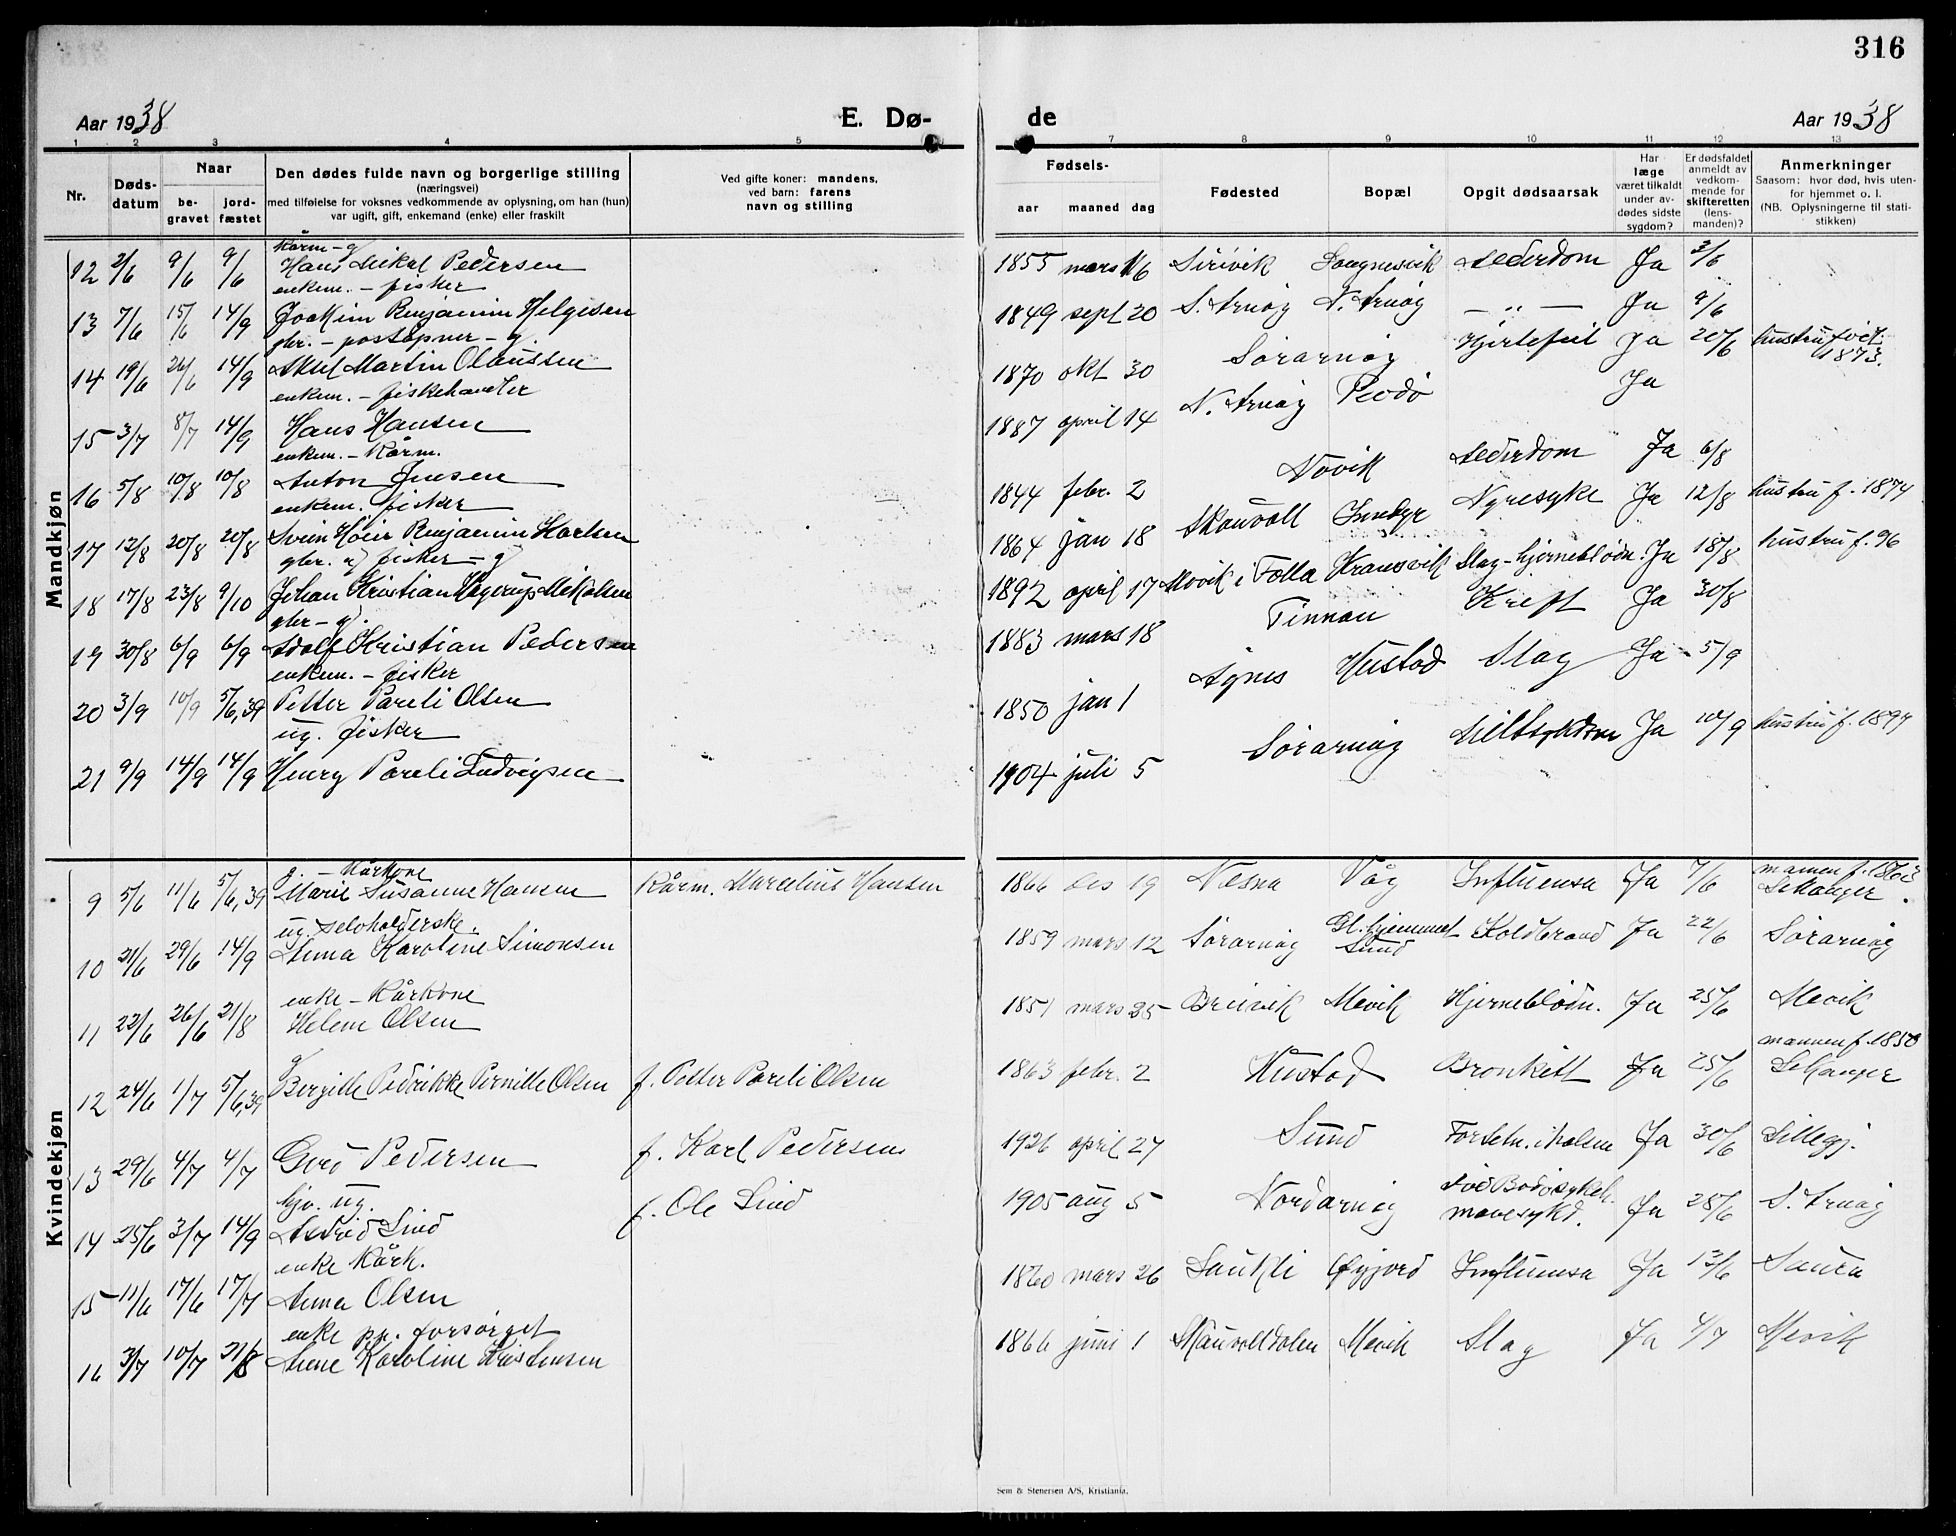 316
Aar 1938
E. Dø-
de
Aar 1938
1 2 3 4 5 7 8 9 10 11 12 13
Nr.
Døds-
datum
Naar
be-
gravet
jord-
fæstet
Den dødes fulde navn og borgerlige stilling
(næringsvei)
med tilføielse for voksnes vedkommende av oplysning, om han (hun)
var ugift, gift, enkemand (enke) eller fraskilt
Ved gifte koner: mandens,
ved barn: farens
navn og stilling
Fødsels-
aar maaned dag
Fødested
Bopæl
Opgit dødsaarsak
Har
læge
været tilkaldt
under av-
dødes sidste
sygdom?
Er dødsfaldet
anmeldt av
vedkom-
mende for
skifteretten
(lens-
manden)?
Anmerkninger
Saasom: hvor død, hvis uten-
for hjemmet o. l.
(NB. Oplysningerne til stati-
stikken)
Mandkjøn
Kårm - g
12 2/6 9/6 9/6 Hans Mikal Pedersen 1855 mars 16 Sørvik Alderdom Ja 3/6
enkem. - fisker
13 7/6 15/6 14/9 Joakim Benjamin Helgesen 1849 sept 20 S. Arnøy N. Arnøy - " - Ja 9/6
gbr. - postopner - g.
14 19/6 26/6 14/9 Martin Olaussen 1870 okt 30 Sørarnøy Hjertefeil Ja 20/6 hustru født 1873.
enkem. - fiskehandler
15 3/7 8/7 14/9 Hans Hansen 1887 april 14 N. Arnøy Bodø Ja
enkem. - Kårm.
16 5/8 10/8 10/8 Anton Jensen 1844 febr. 2 Novik Alderdom Ja 6/8
enkem. fisker
17 12/8 20/8 20/8 Svein Høier Benjamin Karlsen 1864 jan 18 Skauvoll Inndyr Nyresyke Ja 12/8 hustru f. 1874
gbr. og fisker - g
18 17/8 23/8 9/10 Johan Kristian Hagerup Mikalsen 1892 april 17 i Folla Slag - hjerneblødn. Ja 18/8 hustru f. 96
gbr - g.
19 30/8 6/9 6/9 Adolf Kristian Pedersen 1883 mars 18 Finnan Kreft Ja 30/8
enkem. - fisker
20 3/9 10/9 5/6,39 Petter Pareli Olsen 1850 jan 1 Agnes Hustad Slag Ja 5/9
ug. fisker
21 9/9 14/9 14/9 Henry Pareli Ludvigsen 1904 juli 5 Sørarnøy Ja 10/9 hustru f. 1897
Kvindekjøn
g. - Kårkone
9 5/6 11/6 5/6,39 Marie Susanne Hansen Kårm. Marcelius Hansen 1866 des 19 Næsna Våg Influensa Ja 7/6 mannen f. 1863
ug. selvholderske.
10 21/6 29/6 14/9 Anna Karoline Simonsen 1859 mars 12 Sørarnøy Gl.hjemmet Sund Koldbrand Ja 22/6 Sørarnøy
enke - Kårkone
11 22/6 26/6 21/8 Helene Olsen 1851 mars 25 Breivik Mevik Hjerneblødn. Ja 25/6 Mevik
g
12 24/6 1/7 5/6,39 Bergitte Pedrikke Pernille Olsen f. Petter Pareli Olsen 1863 febr. 2 Hustad Bronkitt Ja 25/6 mannen f. 1850
13 29/6 4/7 4/7 Gerd Pedersen f. Karl Pedersen 1926 april 27 Sund Ja 30/6 Lillegj.
hjv. ug.
14 25/6 3/7 14/9 Astrid Lind f. Ole Lind 1905 aug 5 Nordarnøy død Bodø sykeh. mavesykd. Ja 28/6 S. Arnøy
enke Kårk.
15 11/6 17/6 17/7 Anna Olsen 1860 mars 26 Laukli Øyjord Influensa Ja 13/6 Saura
enke pp. forsørget
16 3/7 10/7 21/8 Anne Karoline Kristensen 1866 juni 1 Skauvolldalen Mevik Slag Ja 4/7 Mevik
Sem & Stenersen A/S, Kristiania.